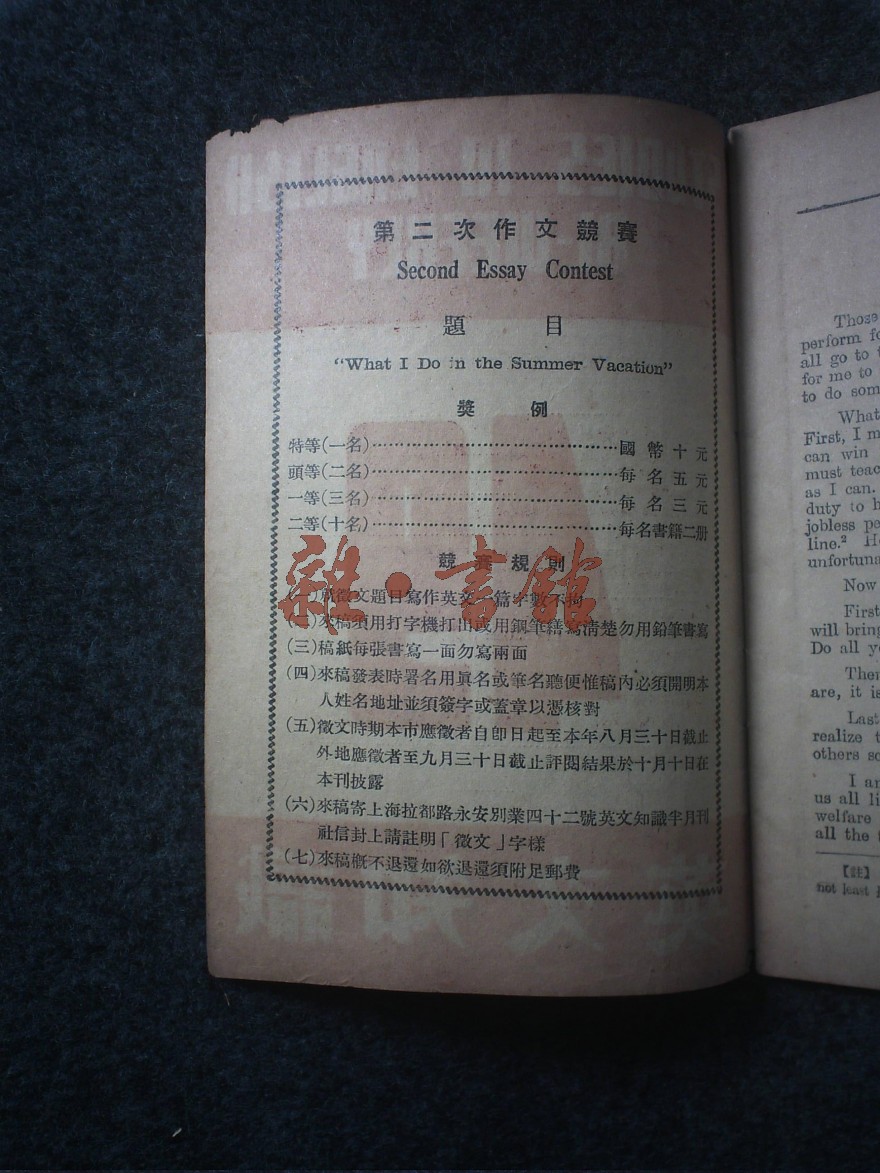 第二次作文競賽
Second Essay Contest
題目
"What I Do in the Summer Vacation"
獎例
特等(一名)……………………………國幣十元
頭等(二名)……………………………每名五元
一等(三名)……………………………每名三元
二等(十名)……………………………每名書籍二册
競賽規則
(一)就徵文題目寫作英文一篇字數不拘
(二)來稿須用打字機打出或用鋼筆繕寫清楚勿用鉛筆書寫
(三)稿紙每張書寫一面勿寫兩面
(四)來稿發表時署名用眞名或筆名聽便惟稿內必須開明本
人姓名地址並須簽字或蓋章以憑核對
(五)徵文時期本市應徵者自卽日起至本年八月三十日截止
外地應徵者至九月三十日截止評閱結果於十月十日在
本刊披露
(六)來稿寄上海拉都路永安別業四十二號英文知識半月刊
社信封上請註明「徵文」字樣
(七)來稿槪不退還如欲退還須附足郵費
雜·書館
Those
perform
all go to
for me to
to do som
What
First, I m
can win
must teac
as I can.
duty to h
jobless pe
line.²
unfortuna
Now
First
will bring
Do all yo
Ther
are, it is
Last
realize t
others so
I am
us all li
welfare
all the
【註】
not least